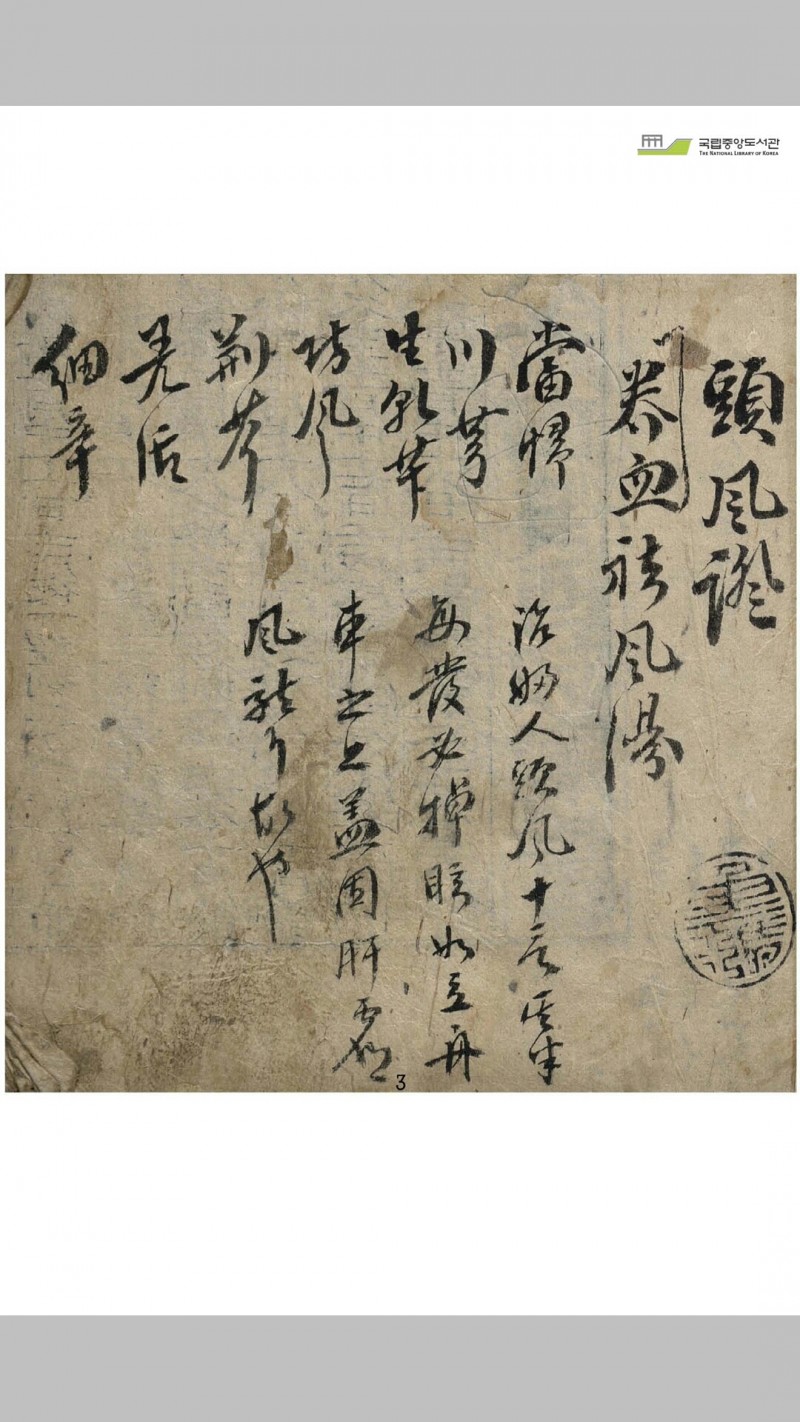 국립중앙도서관
THE NATIONAL LIBRARY OF KOREA
頭風證
養血祛風湯
當歸
川芎
生乾芐
防風
荊芥
羌活
細辛
治婦人頭風十居其半
每發必掉眩如立舟
車之上盖因肝虛
風襲故也
3